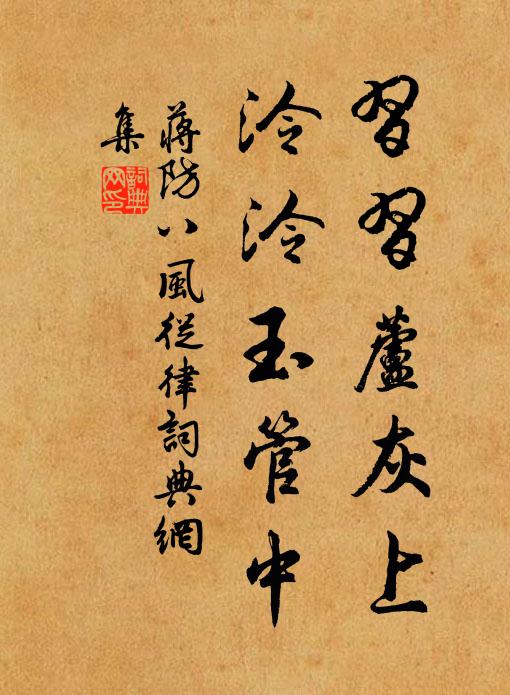 習習蘆灰上
泠泠玉管中
蔣防八風從律詞典網
集
詞典
网印